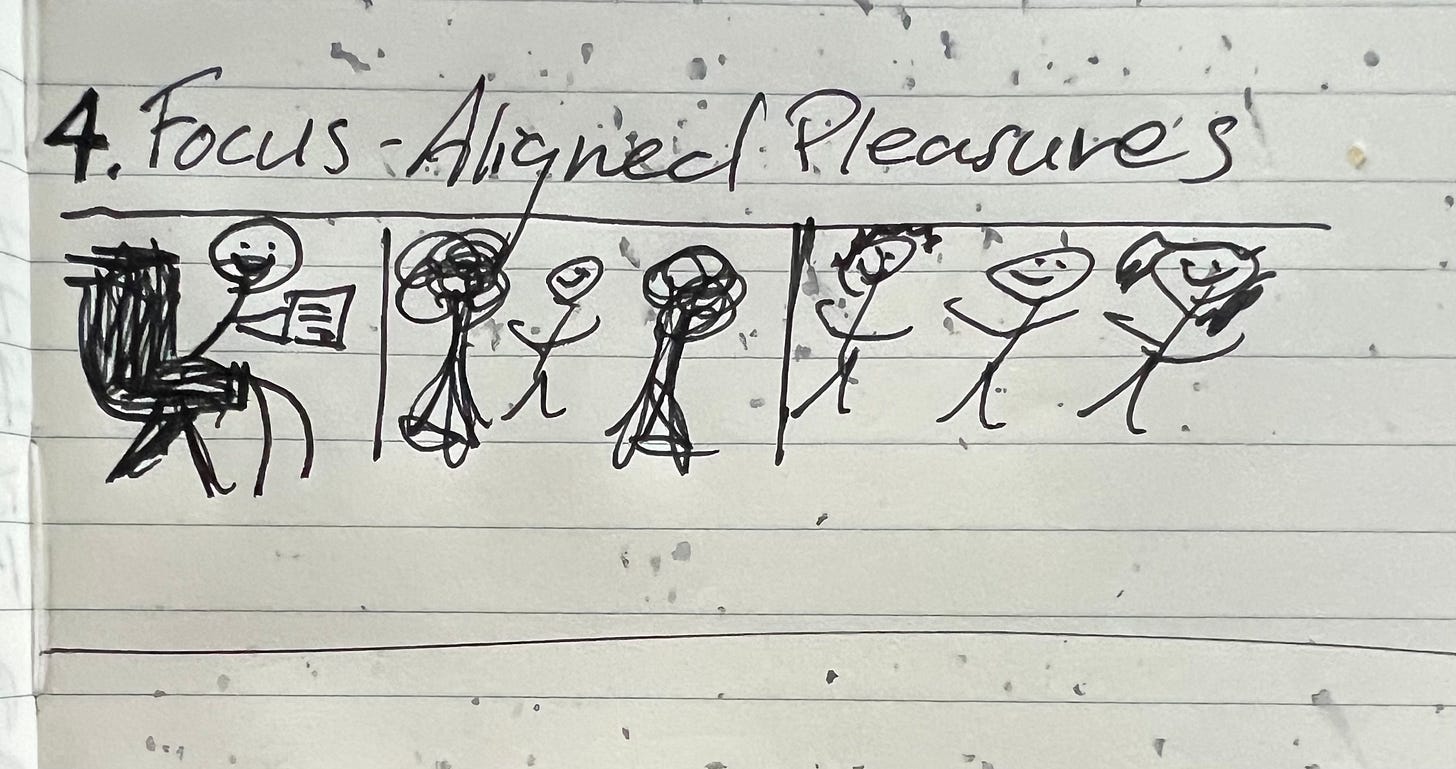 4. Focus-Aligned Pleasures